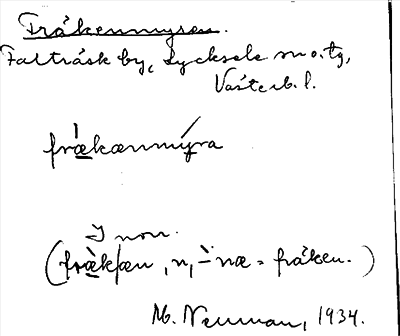 Fräkenmyren.
Falträsk by, Lycksele sn o. tg,
Västerb. l.
frækænmýra
I non.
(fræk|æn, n, -næ = fräken.)
M. Neuman, 1934.